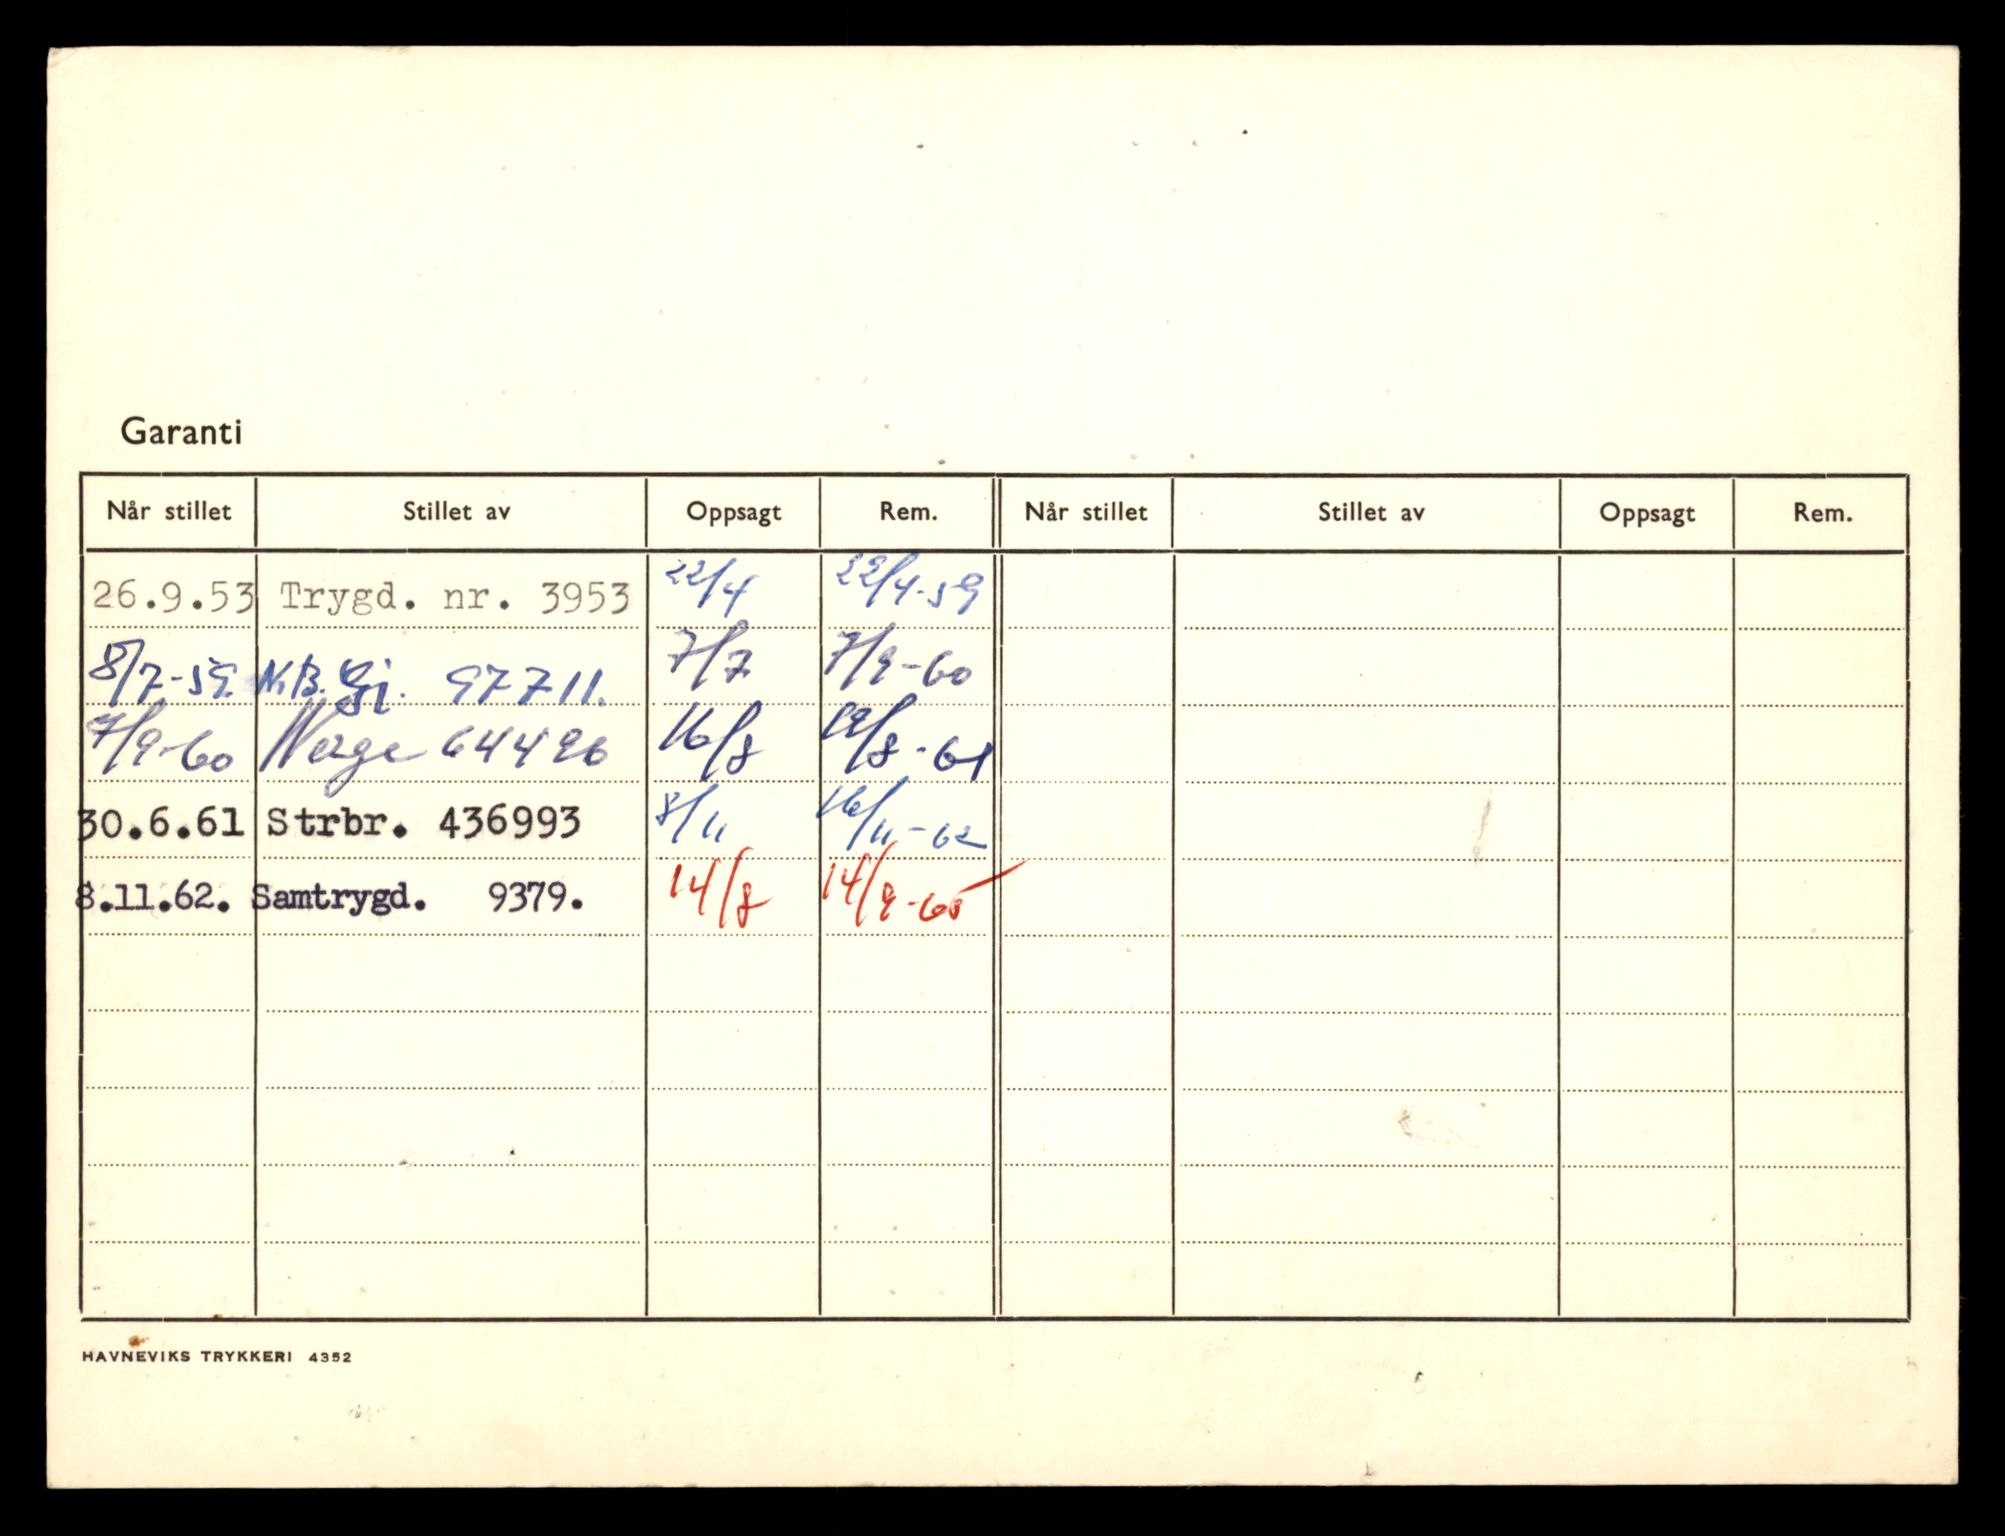 Garanti
Når stillet Stillet av Oppsagt Rem. Når stillet Stillet av Oppsagt Rem.
26.9.53 Trygd. nr. 3953 22/4 22/4-59
8/7-59. N.B.Gj. 97711. 7/7 7/9-60
7/9-60 Norge 64496 16/8 19/8-61
30.6.61 Strbr. 436993 8/11 16/11-62
8.11.62. Samtrygd. 9379. 14/8 14/9-65
HAVNEVIKS TRYKKERI 4352